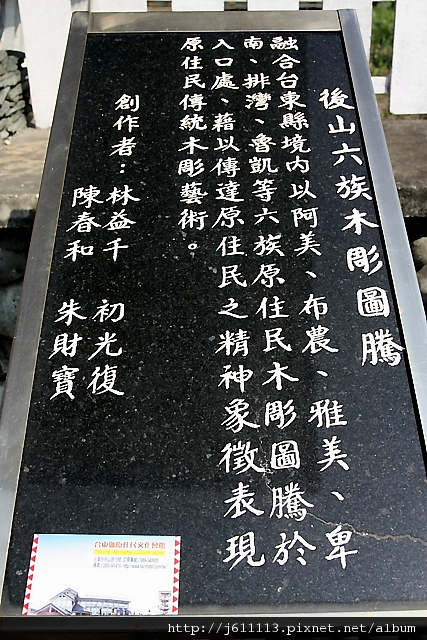 後山六族木彫圖騰
融合台東縣境內以阿美、布農、雅美、卑
南、排灣、魯凱等六族原住民木彫圖騰於
入口處、藉以傳達原住民之精神象徵表現
原住民傳統木彫藝術。
創作者：林益千 初光復
陳春和 朱財寶
http://j611113.pixnet.net/album